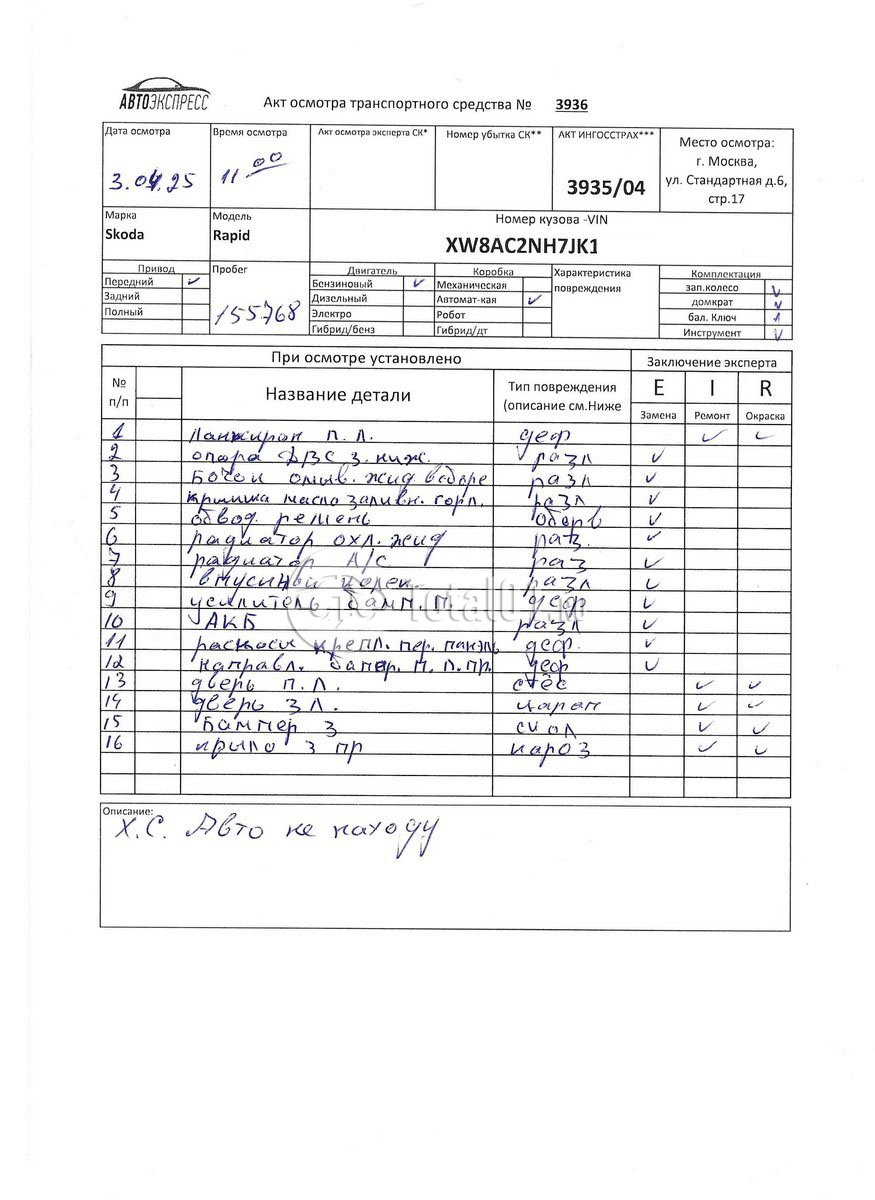 АВТОЭКСПРЕСС
Акт осмотра транспортного средства № 3936
Дата осмотра Время осмотра Акт осмотра эксперта СК* Номер убытка СК** АКТ ИНГОССТРАХ*** Место осмотра:
г. Москва,
ул. Стандартная д.6,
стр.17
3.04.25 11 00 3935/04
Марка Модель Номер кузова -VIN
Skoda Rapid XW8AC2NH7JK1
Привод Пробег Двигатель Коробка Характеристика повреждения Комплектация
Передний ✓ Бензиновый ✓ Механическая зап.колесо ✓
Задний Дизельный Автомат-кая ✓ домкрат ✓
Полный 155768 Электро Робот бал. Ключ
Гибрид/бенз Гибрид/дт Инструмент ✓
При осмотре установлено Заключение эксперта
№ п/п Название детали Тип повреждения (описание см.Ниже E I R
Замена Ремонт Окраска
1 Ланжирон п.л. деф ✓ ✓
2 опора ДВС з. ниж. разл ✓
3 Бачок омыв. жид в сборе разл ✓
4 крышка масло заливн. горл. разл ✓
5 обвод. ремень оборв ✓
6 радиатор охл. жид раз. ✓
7 радиатор A/C раз ✓
8 впускной колек разл ✓
9 усилитель бамп. п. деф ✓
10 АКБ разл ✓
11 крепл. пер. панэль деф. ✓
12 направл. бампер. п. л. пр. деф ✓
13 дверь п.л. ✓ ✓
14 дверь з л. царап ✓ ✓
15 Бампер з скол ✓ ✓
16 крыло з пр короз ✓ ✓
Описание:
Х.С. Авто не на ходу